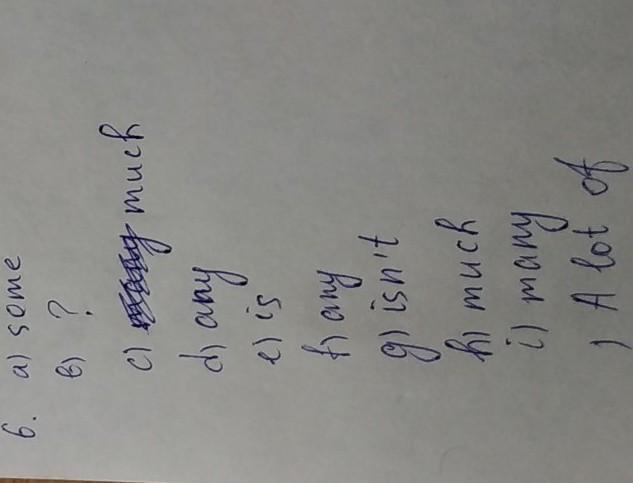 6. a) some
b) ?
c) much
d) any
e) is
f) any
g) isn't
h) much
i) many
) A lot of